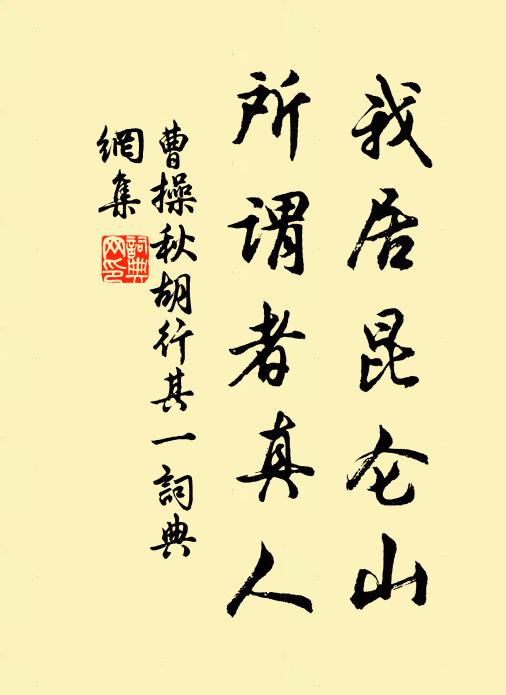 我居昆仑山
所謂者真人
曹操秋胡行其一詞典
網集
詞典
网印